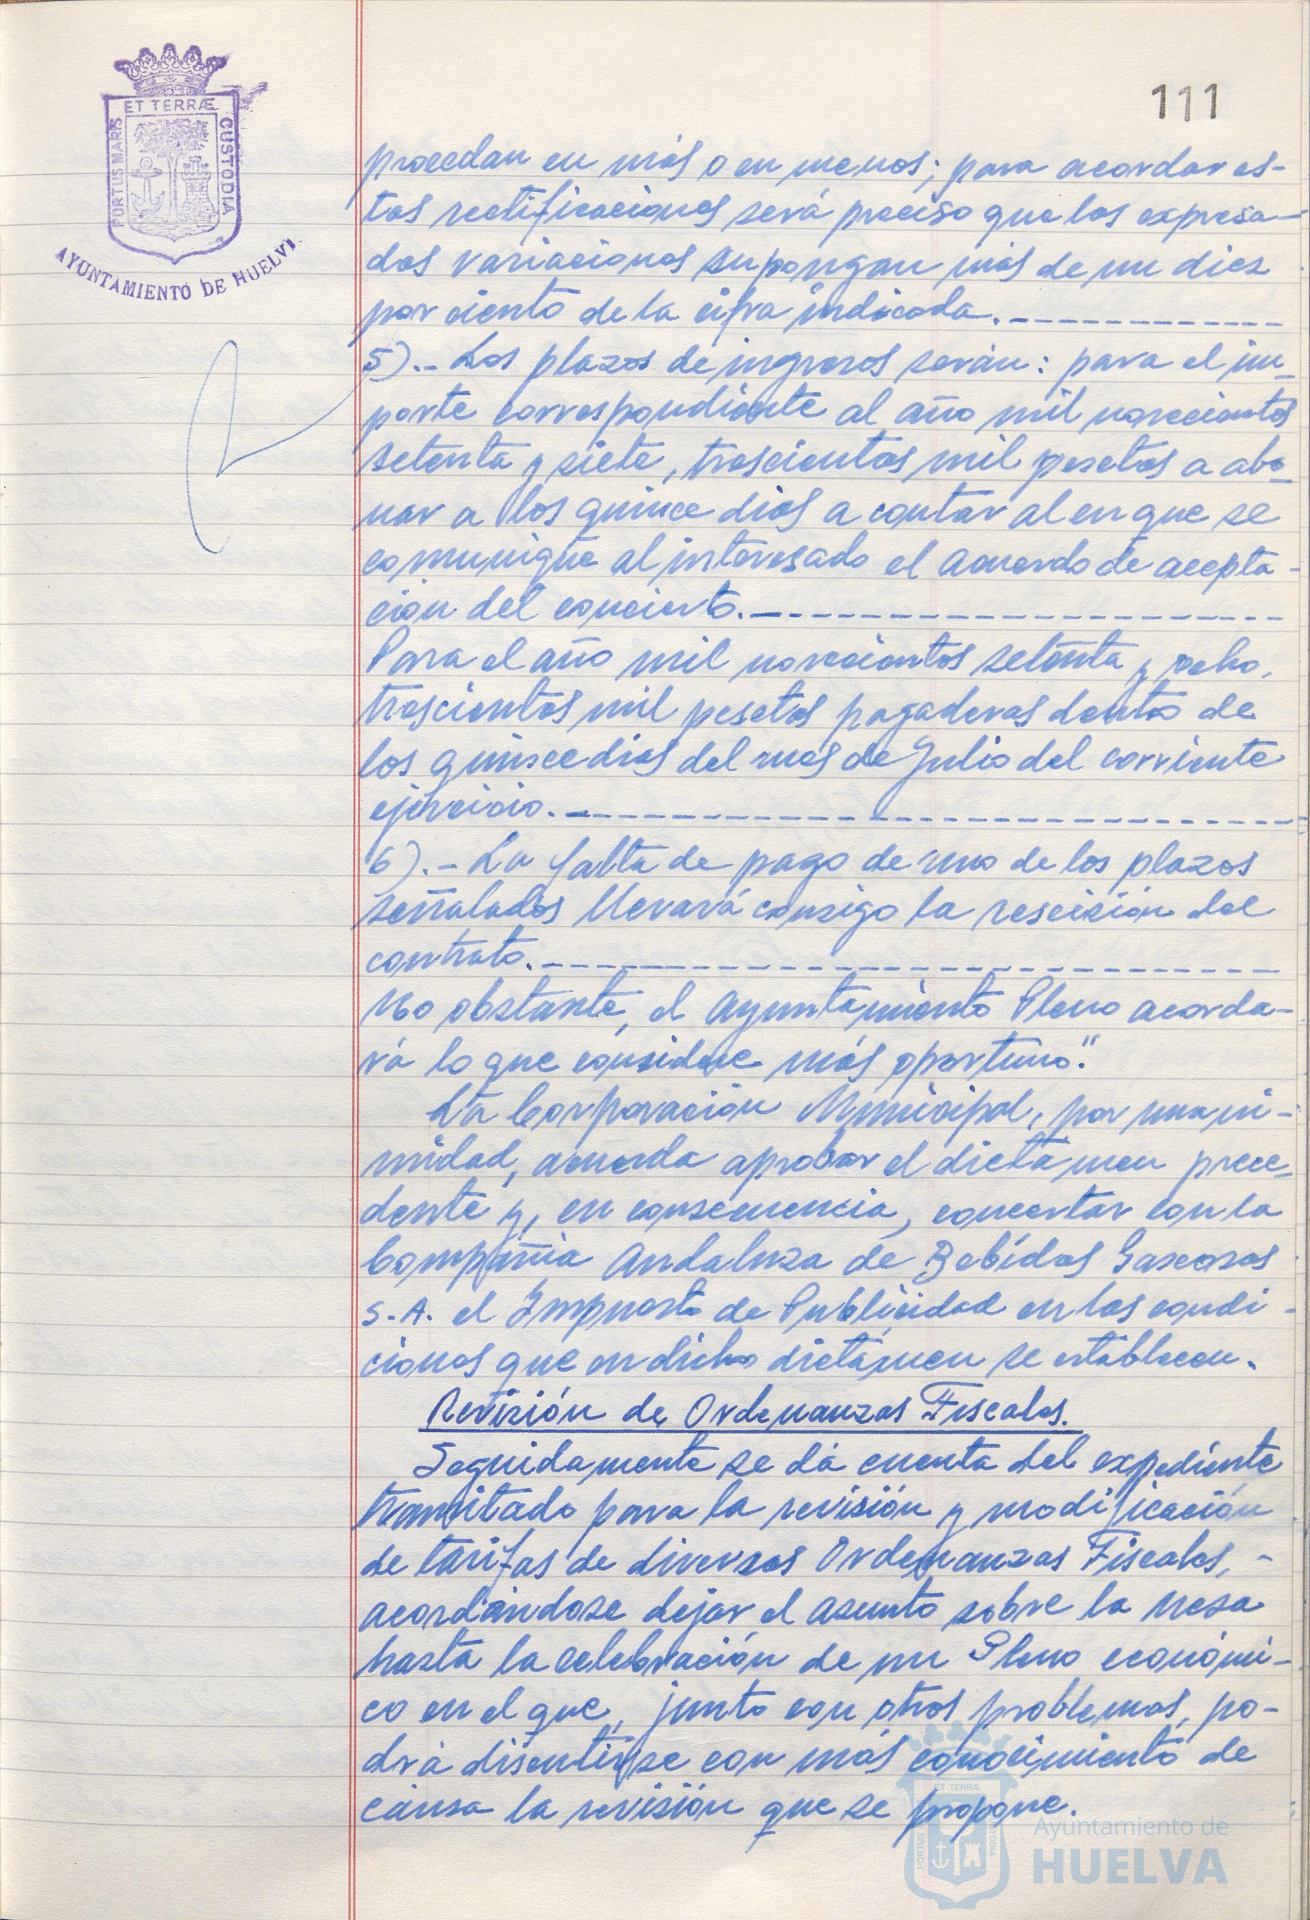 111
ET TERRÆ
PORTUS MARIS
CUSTODIA
AYUNTAMIENTO DE HUELVA
procedan en más o en menos; para acordar es-
tas rectificaciones será preciso que las expresa-
das variaciones supongan más de un diez
por ciento de la cifra indicada.
5).- Los plazos de ingresos serán: para el im-
porte correspondiente al año mil novecientos
setenta y siete, trescientas mil pesetas a abo-
nar a los quince dias a contar al en que se
comunique al interesado el acuerdo de acepta-
ción del concierto.
Para el año mil novecientos setenta y ocho,
trescientas mil pesetas pagaderas dentro de
los quince dias del mes de Julio del corriente
ejercicio.
6).- La falta de pago de uno de los plazos
señalados llevará consigo la rescisión del
contrato.
No obstante, el Ayuntamiento Pleno acorda-
rá lo que considere más oportuno".
La Corporación Municipal, por unani-
midad, acuerda aprobar el dictamen prece-
dente y, en consecuencia, concertar con la
Compañia Andaluza de Bebidas Gaseosas
S.A. el Impuesto de Publicidad en las condi-
ciones que en dicho dictámen se establecen.
Revisión de Ordenanzas Fiscales.
Seguidamente se dá cuenta del expediente
tramitado para la revisión y modificación
de tarifas de diversas Ordenanzas Fiscales, -
acordándose dejar el asunto sobre la mesa
hasta la celebración de un Pleno económi-
co en el que, junto con otros problemas, po-
drá discutirse con más conocimiento de
causa la revisión que se propone.
ET TERRÆ
PORTUS
CUSTODIA
Ayuntamiento de
HUELVA